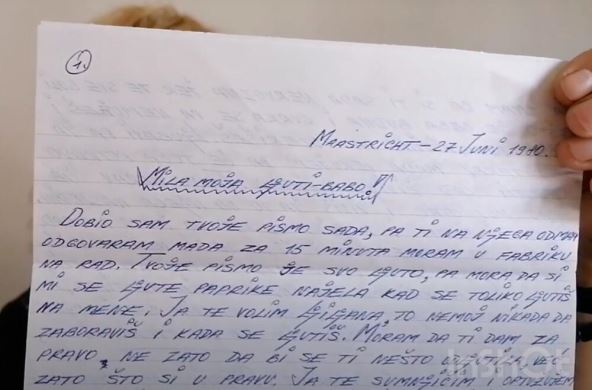 1.
MAASTRICHT – 27 JUNI 1980.
MILA MOJA LJUTI-BABO!
DOBIO SAM TVOJE PISMO SADA, PA TI NA NJEGA ODMAH
ODGOVARAM MADA ZA 15 MINUTA MORAM U FABRIKU
NA RAD. TVOJE PISMO JE SVO LJUTO, PA MORA DA SI
MI SE LJUTE PAPRIKE NAJELA KAD SE TOLIKO LJUTIŠ
NA MENE. JA TE VOLIM LJILJANA, TO NEMOJ NIKADA DA
ZABORAVIŠ I KADA SE LJUTIŠ. MORAM DA TI DAM ZA
PRAVO, NE ZATO DA BI SE TI NEŠTO VEĆ
ZATO ŠTO SI U PRAVU. JA TE SUMNJIČIM I OPTUŽUJEM
InShot